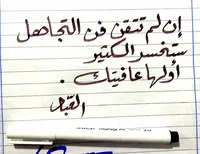 إن لم تتقن فن التجاهل
ستخسر الكثير
أولها عافيتك .